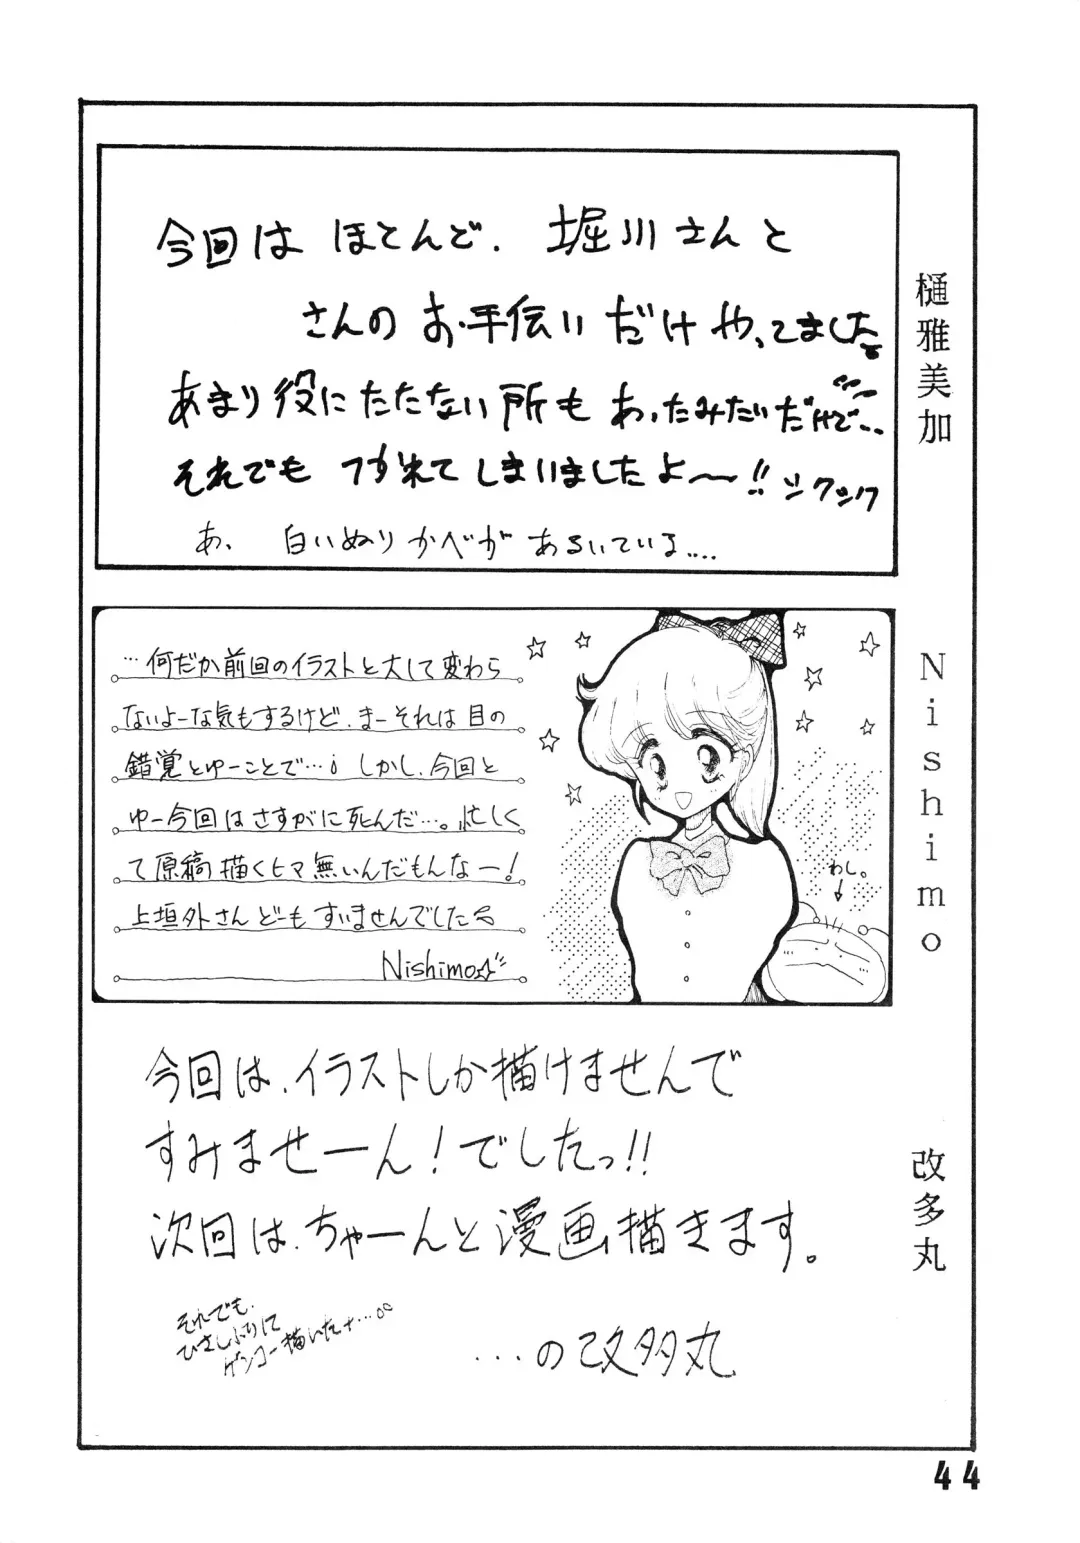 樋雅美加
今回は ほとんど、 堀川さんと
さんの お手伝い だけ やってました
あまり役にたたない所も あったみたいだけで‥
それでも つかれて しまいましたよ〜!! シクシク
あ、 白いぬりかべが あるいている‥‥
Nishimo
…何だか前回のイラストと大して変わら
ないよーな気もするけど、まーそれは目の
錯覚とゆーことで…¡ しかし、今回と
ゆー今回はさすがに死んだ…。忙しく
て原稿描くヒマ無いんだもんなー!
上垣外さん どーも すいませんでした
Nishimo☆
わし。
改多丸
今回は、イラストしか描けませんで
すみませーん!でしたっ!!
次回は、ちゃーんと漫画描きます。
それでも、
ひさしぶりに
ゲンコー描いたナ…。。
…の改多丸
44